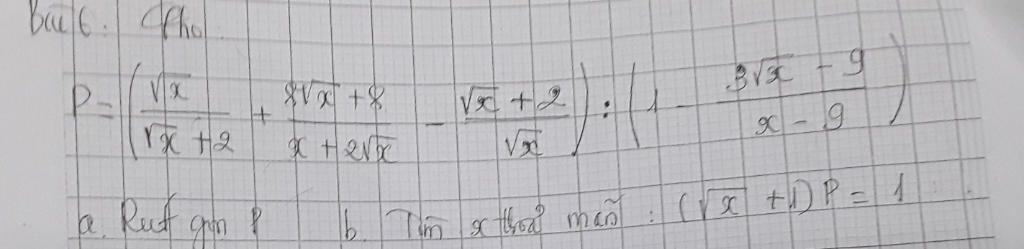 Bài 6: Cho
P = (√x / (√x + 2) + (8√x + 8) / (x + 2√x) - (√x + 2) / √x) : (1 - (3√x - 9) / (x - 9))
a. Rút gọn P b. Tìm x thoả mãn : (√x + 1)P = 1